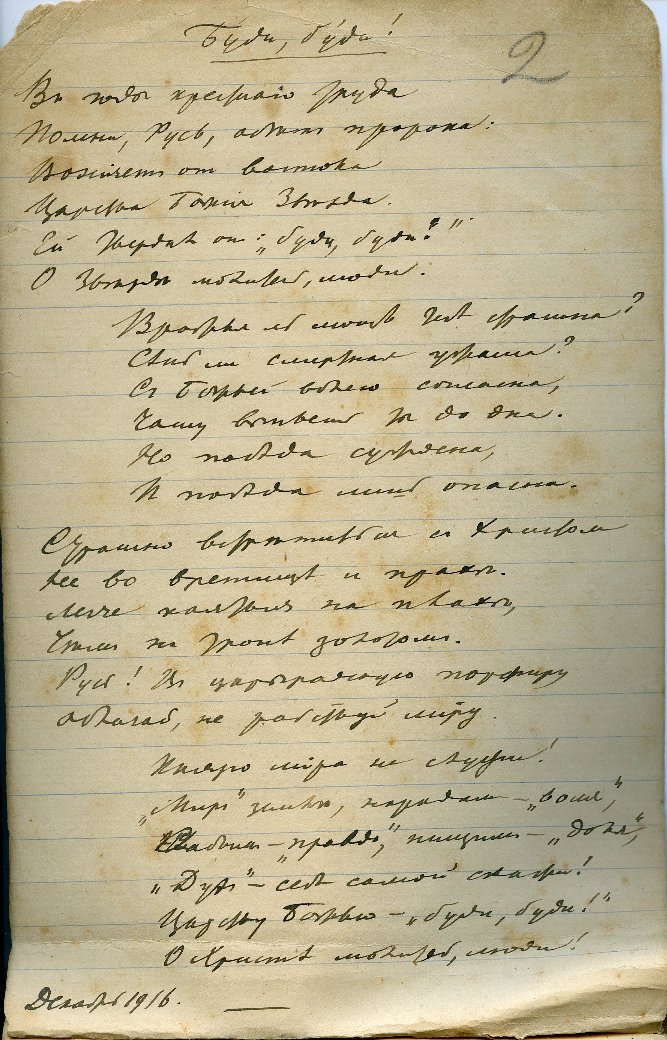 Буди, буди!
2
Въ годы крестнаго труда
Помни, Русь, обѣтъ пророка:
Возсіяетъ отъ востока
Царства Божія Звѣзда.
Ей твердитъ онъ: „буди, буди!"
О Звѣздѣ молитесь, люди.
Вражья ль мощь тебѣ страшна?
Снѣдь ли смертная ужасна?
Съ Божьей волею согласна,
Чашу выпьешь ты до дна.
Но побѣда суждена,
И побѣда лишь опасна.
Страшно встрѣтиться съ Христомъ
Не во вретищѣ и прахѣ.
Легче каяться на плахѣ,
Чѣмъ на тронѣ золотомъ.
Русь! Въ царьградскую порфиру
Облачась, не рабствуй міру.
Князю міра не служи!
„Миръ" землѣ, народамъ – „воля",
Слабымъ – „правда", нищимъ – „доля",
„Духъ" – себѣ самой скажи!
Царству Божью – „буди, буди!"
О Христѣ молитесь, люди!
Декабрь 1916.